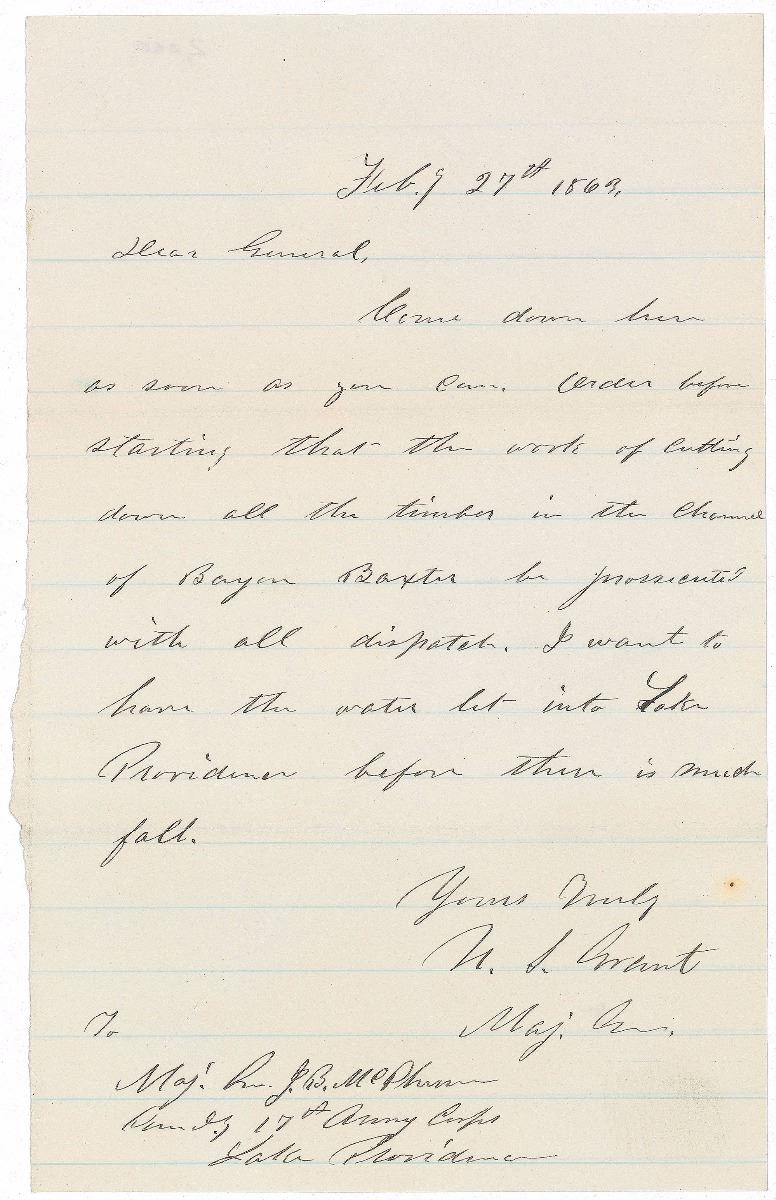 Feb.y 27th 1863.
Dear General,
Come down here
as soon as you can. Order before
starting that the work of cutting
down all the timber in the channel
of Bayou Baxter be prossecuted
with all dispatch. I want to
have the water let into Lake
Providence before there is much
fall.
Yours Truly
U. S. Grant
Maj. Gen.
To
Maj. Gen. J. B. McPherson
Comd.g 17th Army Corps
Lake Providence